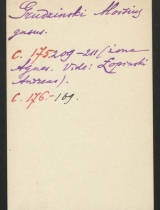 Grudzinski Martius
gasus.
C. 175209-211 (żona
Agnes. Vide: Łopinski
Andreas).
C. 176-169.